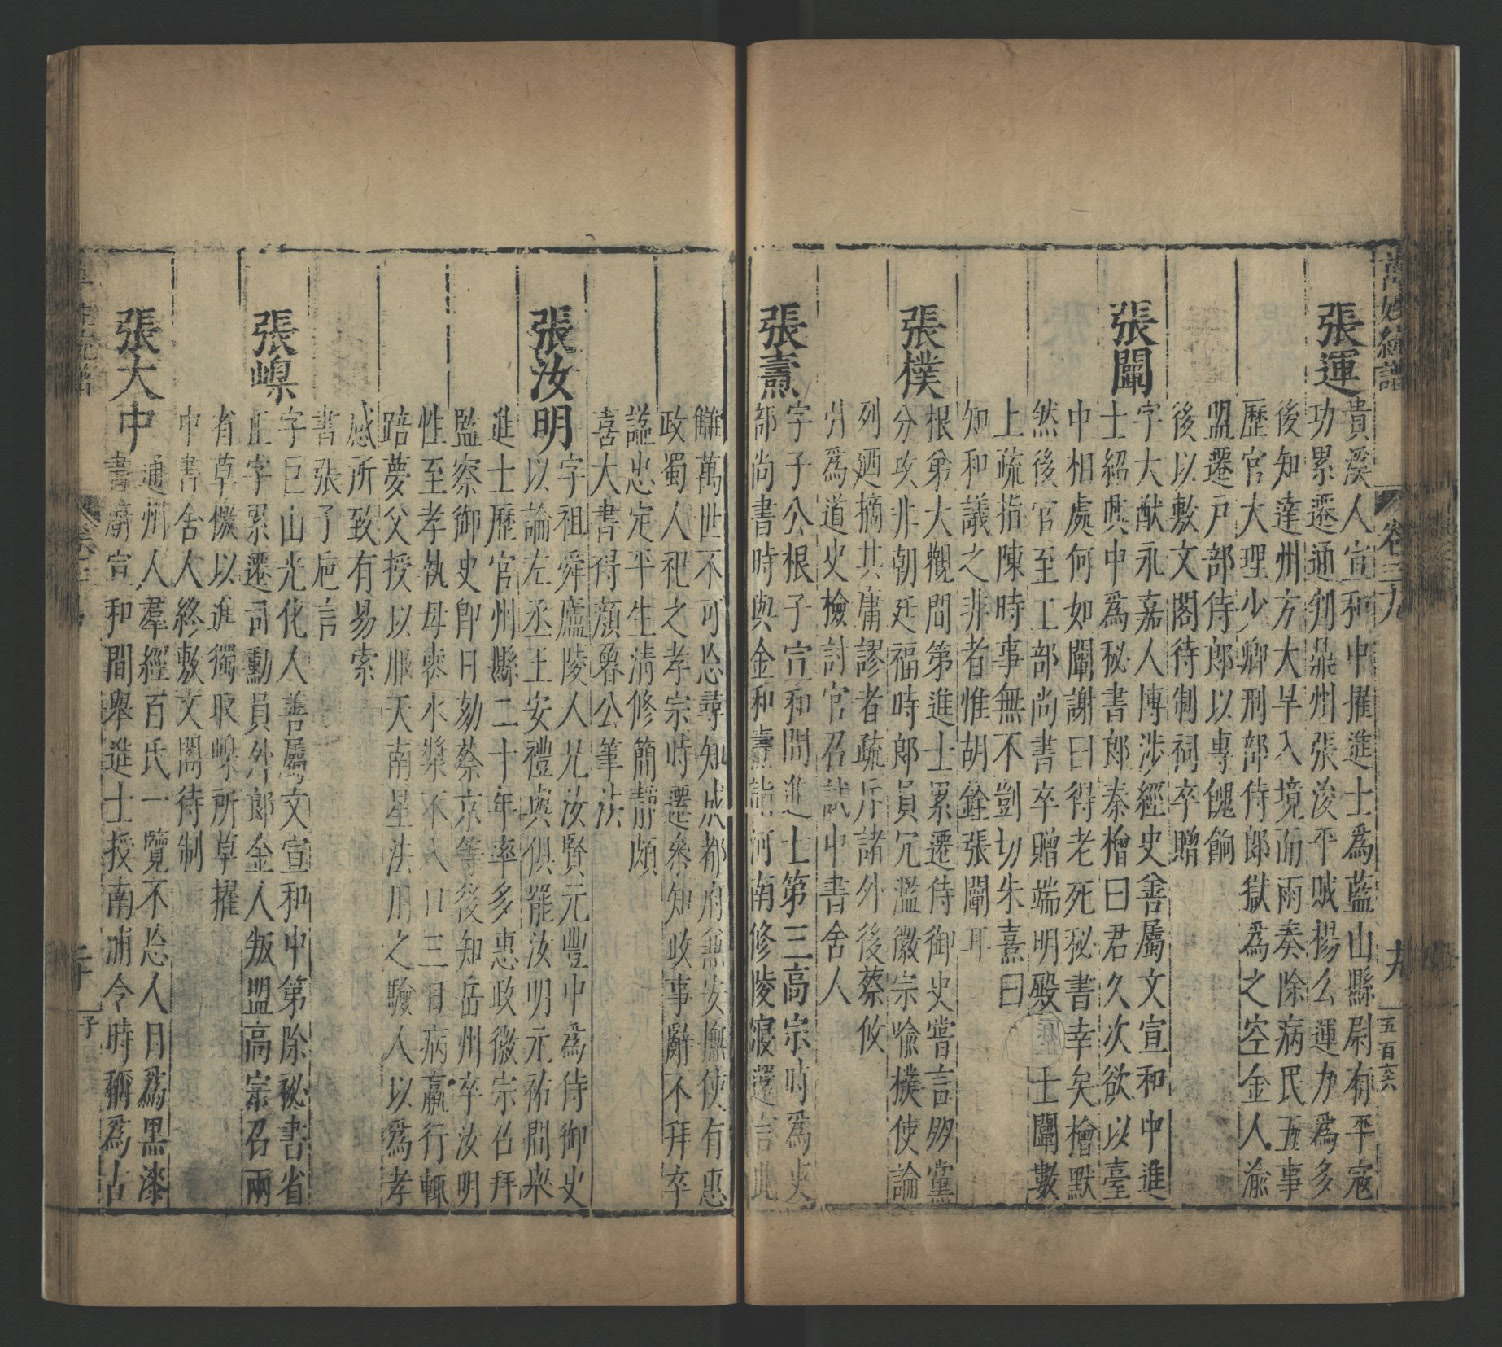 張運
貴溪人宣和中擢進士為藍山縣尉有平寇
功累遷通判鼎州張浚平賊揚么運力為多
後知達州方大旱入境而雨奏除病民五事
歷官大理少卿刑部侍郎獄為之空金人渝
盟遷戶部侍郎以專餽餉
後以敷文閣待制祠卒贈
張闡
字大猷永嘉人博涉經史善屬文宣和中進
士紹興中為秘書郎秦檜曰君久次欲以臺
中相處何如闡謝曰得老死秘書幸矣檜默
然後官至工部尚書卒贈端明殿 士闡數
上疏指陳時事無不剴切朱熹曰
知和議之非者惟胡銓張闡耳
張樸
根弟大觀間第進士累遷侍御史嘗言朋黨
分攻非朝廷福時郎員冗濫徽宗喻樸使論
列廼摘其庸謬者疏斥諸外後蔡攸
引為道史檢討官召試中書舍人
張燾
字子公根子宣和間進士第三高宗時為吏
部尚書時與金和燾詣河南修陵寢還言此
讎萬世不可忘尋知成都府兼安撫使有惠
政蜀人祀之孝宗時遷參知政事辭不拜卒
謚忠定平生清修簡靜頗
喜大書得顏魯公筆法
張汝明
字祖舜廬陵人兄汝賢元豐中為侍御史
以論左丞王安禮與俱罷汝明元祐間來
進士歷官州縣二十年率多惠政徽宗召拜
監察御史即日劾蔡京等後知岳州卒汝明
性至孝執母喪水漿不入口三日病羸行輒
踣夢父授以服天南星法用之驗人以為孝
感所致有易索
書張子卮言
張嵲
字巨山光化人善屬文宣和中第除秘書省
正字累遷司勳員外郎金人叛盟高宗召兩
省草檄以進獨取嵲所草擢
中書舍人終敷文閣待制
張大中
通州人羣經百氏一覽不忘人目為黑漆
書廚宣和間舉進士授南浦令時稱為古
萬姓統譜
卷三九
五百六